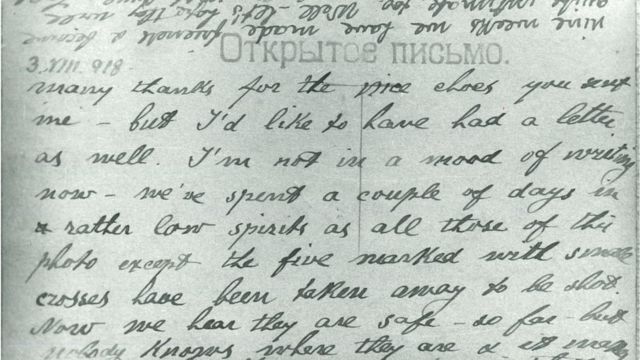 quite intimate too Well - let's take the
we have made friends a become
Открытое письмо.
3.VIII.918.
many thanks for the nice choes you sent
me - but I'd like to have had a letter
as well. I'm not in a mood of writing
now - we've spent a couple of days in
rather low spirits as all those of this
photo except the five marked with small
crosses have been taken away to be shot.
Now we hear they are safe - so far - but
nobody knows where they are a it may